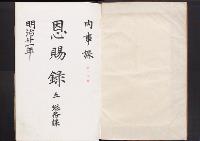 内事課
恩賜録
五 総務課
明治廿一年